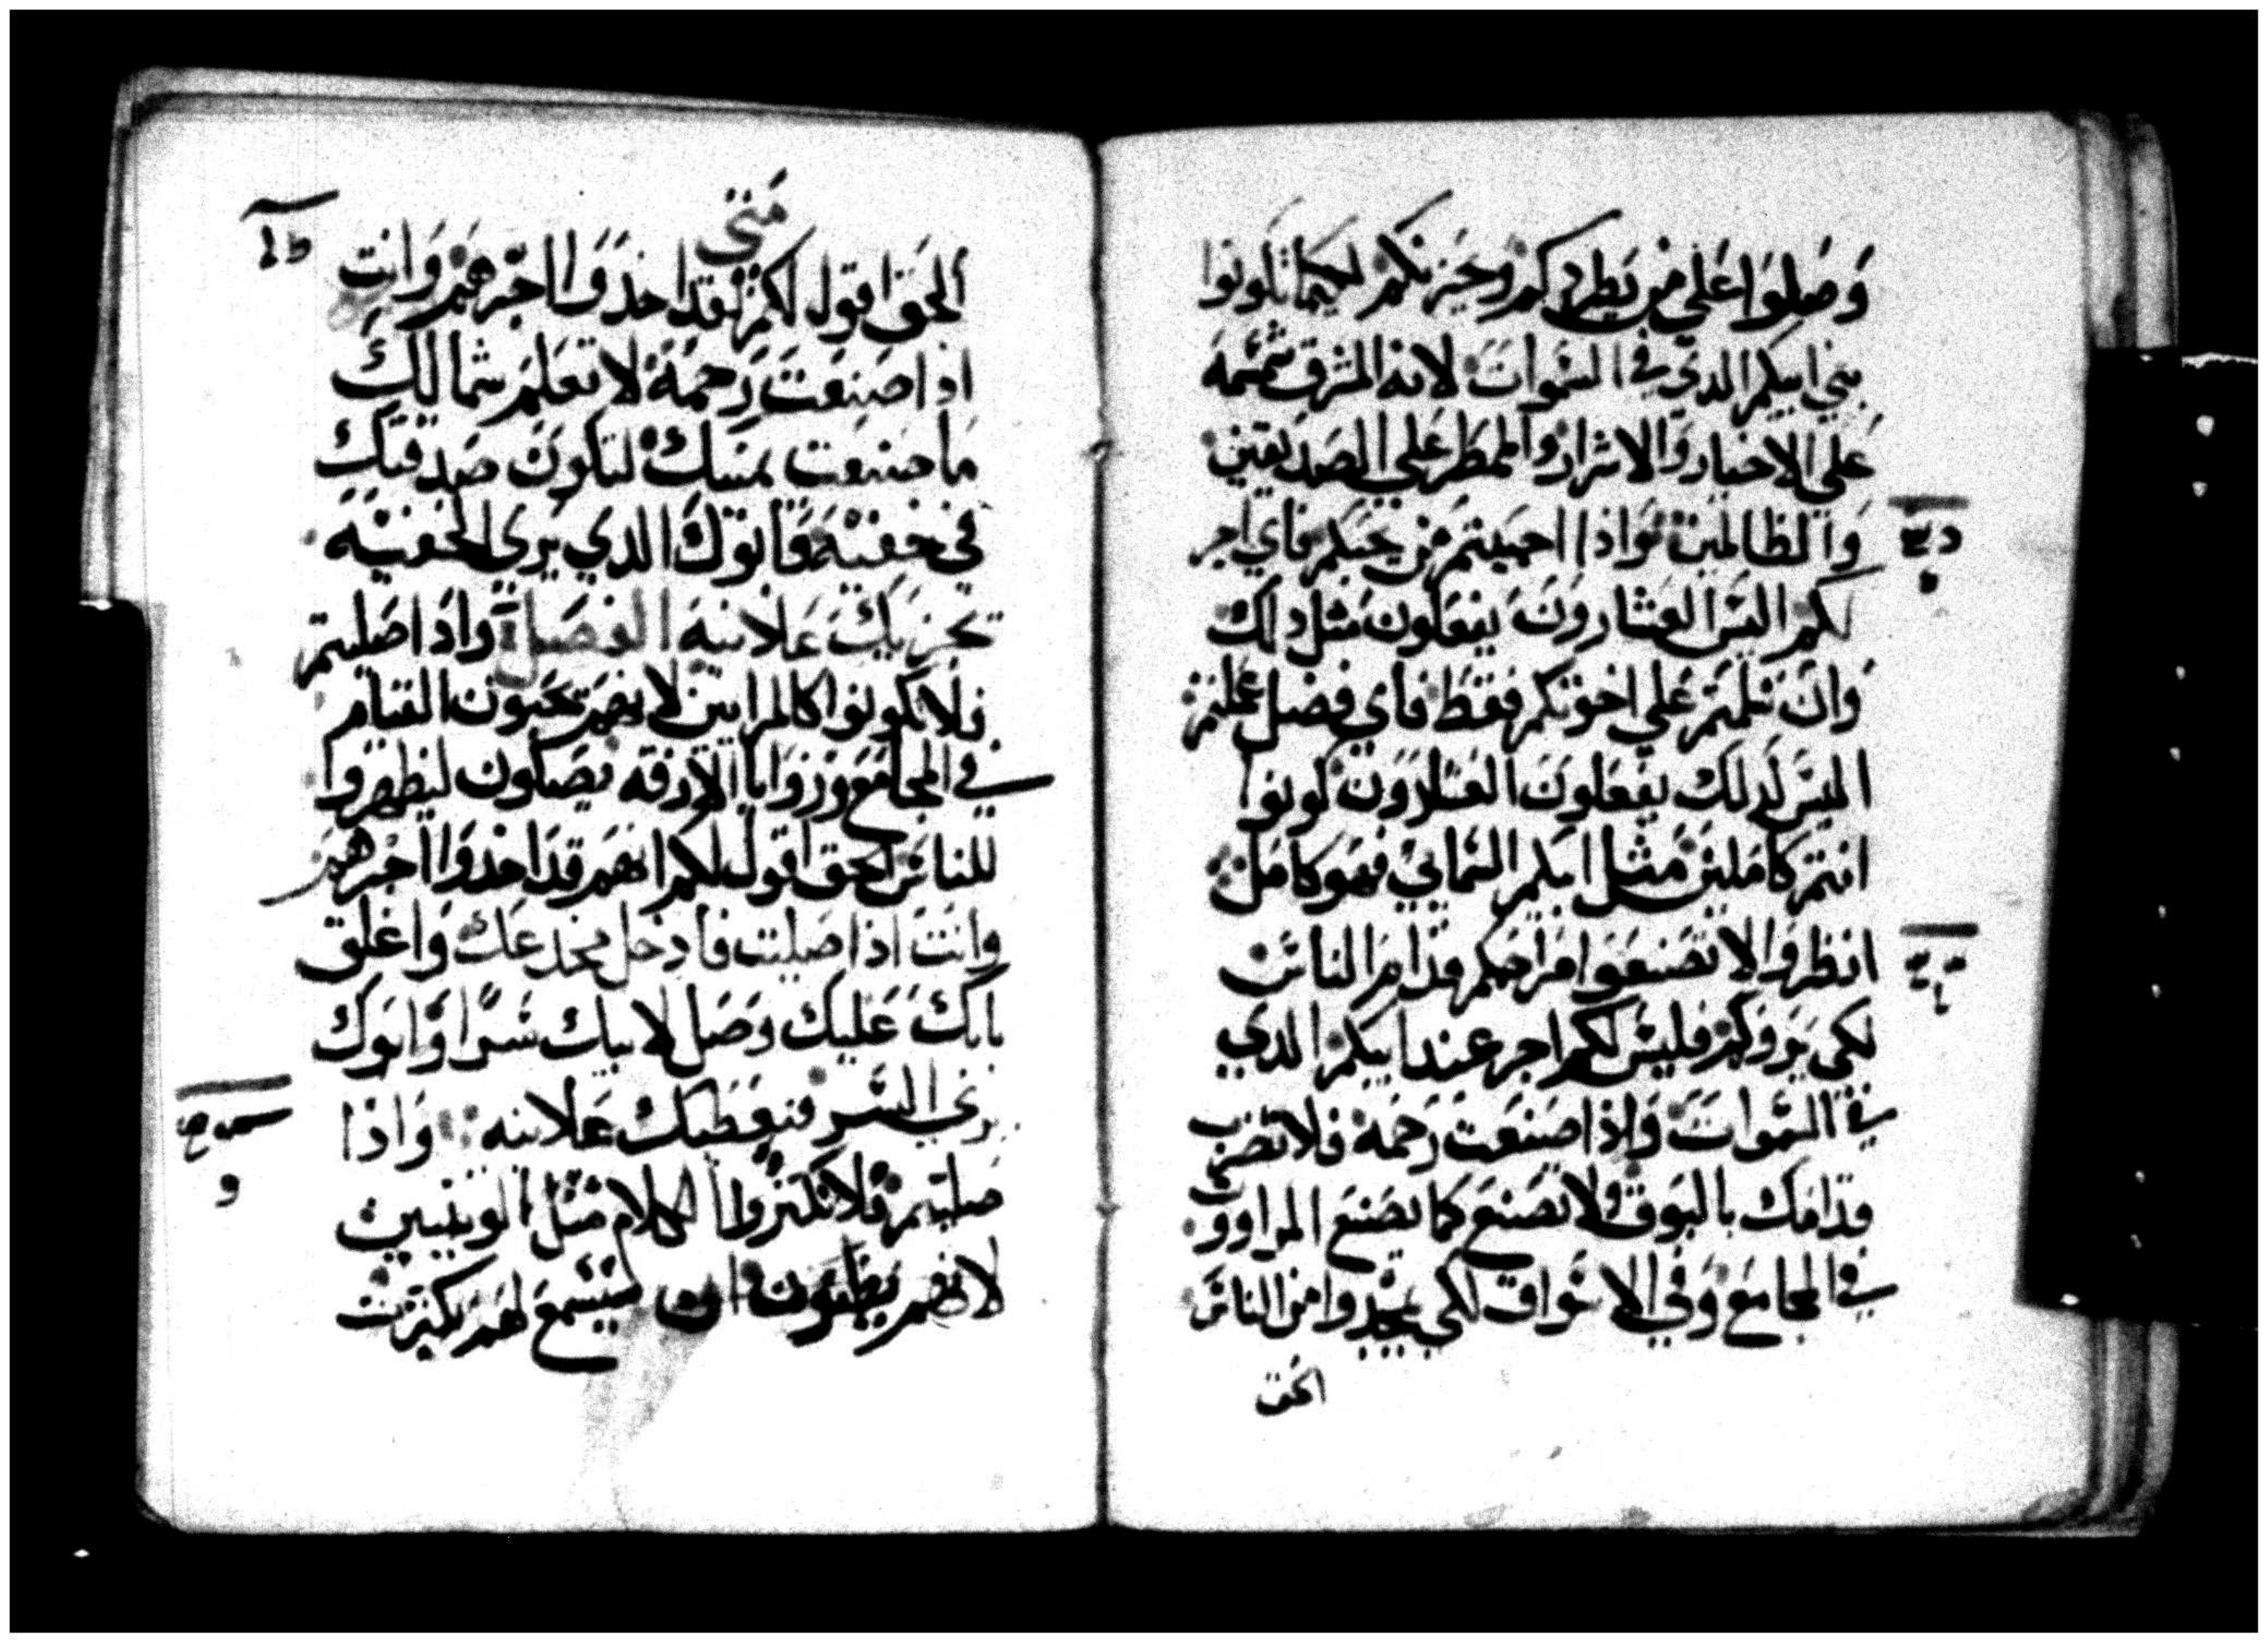 وَصَلوَا عَلي من يَطردكم وحَيزنكم لكيما تكونوا
بني ابيكم الدي في السَموات لانه المشرق شمَسَه
عَلي الاخيار وَالاشرار والممطَر عَلي الصَديقين
وَالظالمين وَاذا احبَبتم مَن يحبَكم فاي اجر
لكم اليسَ العَشارونَ يفعَلون مثل دلك
وَان سَلمتم عَلي اخوتكم فقَط فاي فضل عَملتم
اليسَ كدلك يفعَلونَ العَشارَوَن كونوا
انتم كامَلين مثل ابيكم السَمايي فهو كامَل
انظروَا لا تصَنعَوا مَراحمكم قدام الناسَ
لكي يَروَكم فليسَ لكم اجر عند ابيكم الدي
في السَموات وَاذا صَنعَت رَحمَة فلا تضرب
قدامَك بالبَوق ولا تصَنعَ كما يصَنع المراوون
في المجامَع وَفي الاسَواق لكي يمجدوا من الناسَ
الحق
مَتي
١٥
الحَق اقول لكم لقد اخدَوَا اجرهَم وَانت
اذا صَنعَت رَحمَة لا تعَلم شمالك
مَا صَنعَت يمينك لتكونَ صَدقتك
في خفيَه وَابوَك الدي يَري الخفيَه
يجزيكَ عَلانيه الفصَل وَاذا صَليتم
فلا تكونوا كالمرايين لانهَم يحبَون القيام
في المجامَع وَزوَايا الازقه يصَلون ليظهَروا
للناسَ الحق اقول لكم انهَم قد اخدَوَا اجرهَم
وانتَ اذا صَليت فادخل مخدعَك وَاغلق
بابكَ عَليك وَصَل لابيك سَرا وَابوَك
يري السَر فيعَطيك عَلانيه وَاذا
صَليتم فلا تكتروا الكلام مَثل الوثنيين
لانهَم يظنون انه سيسَمعَ لهَم بكثرت